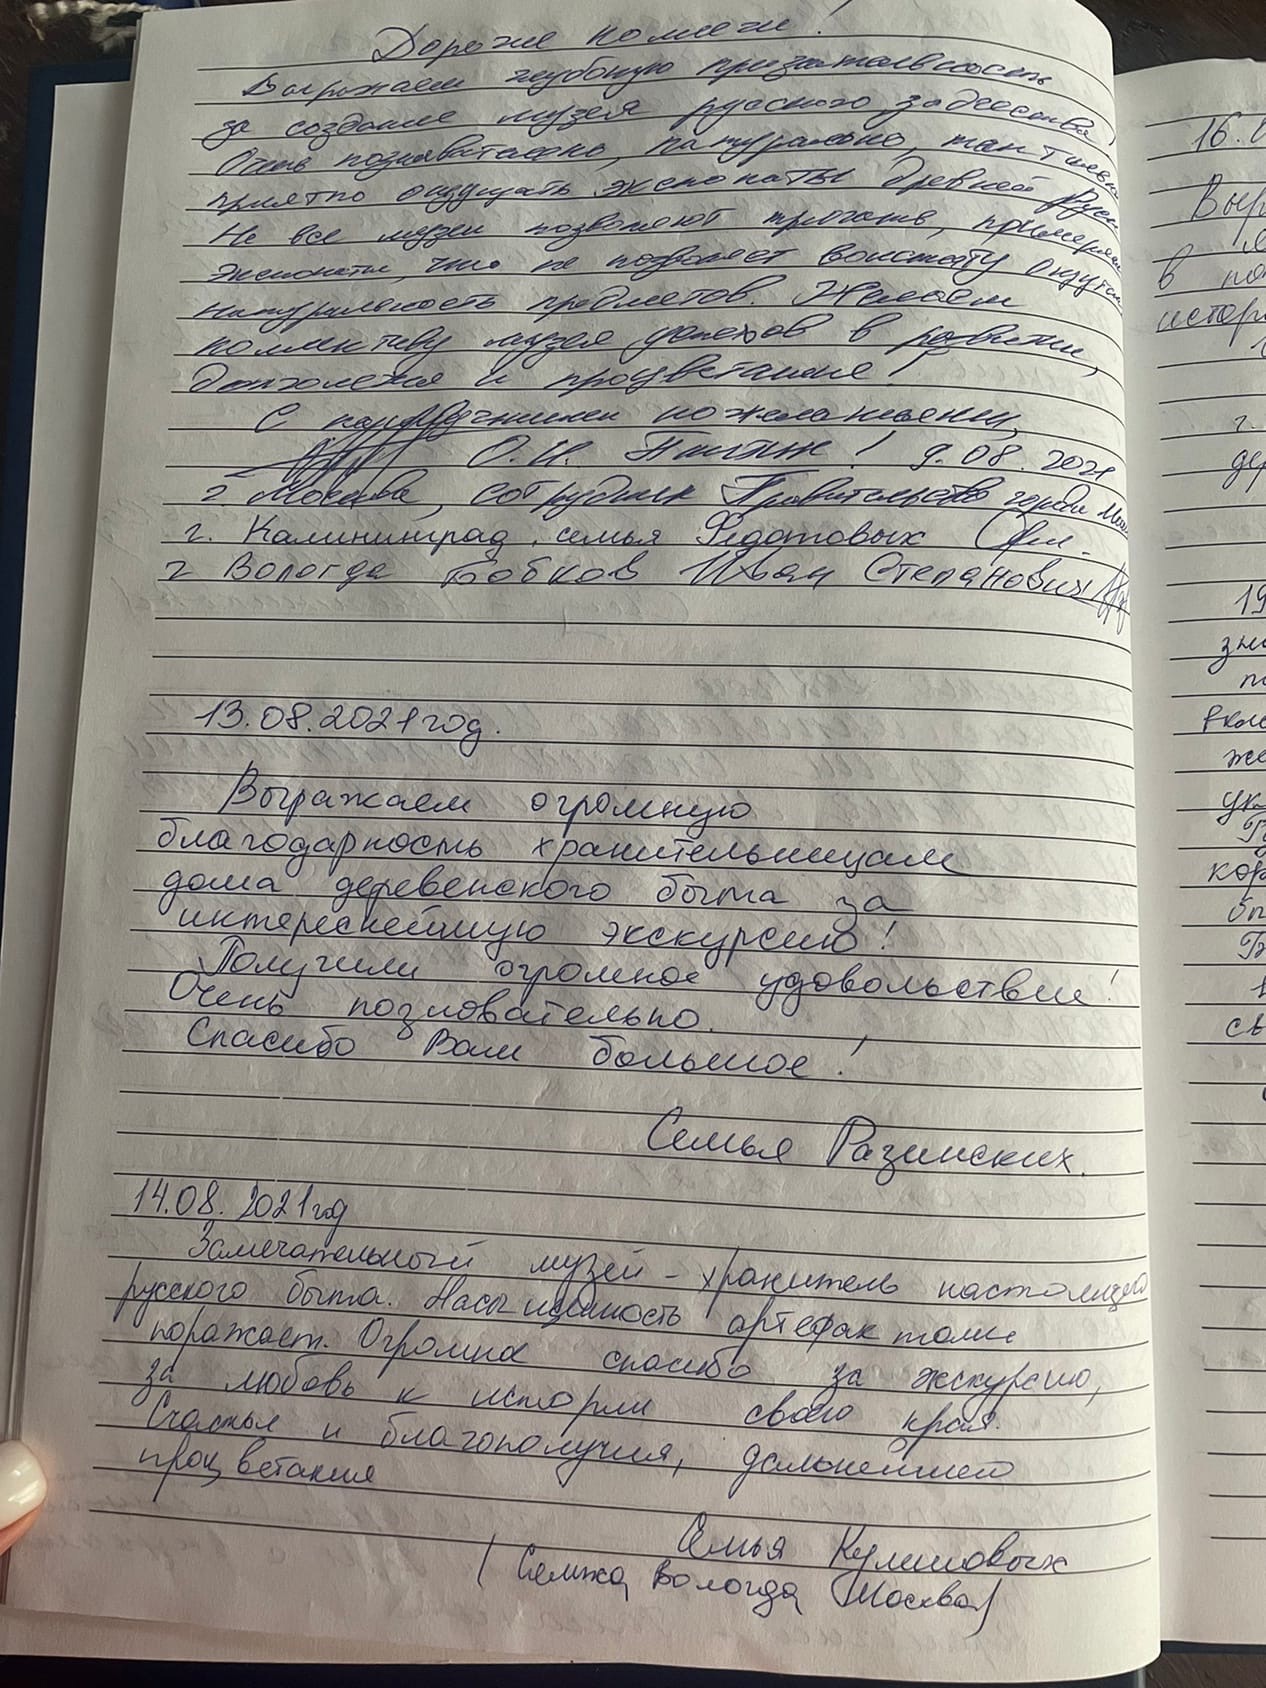 Дорогие коллеги!
Выражаем глубокую признательность
за создание музея русского зодчества,
Очень познавательно, натурально, тактильно
приятно ощущать экспонаты древней Руси
Не все музеи позволяют трогать, примерять
экспонаты, что не позволяет воистину ощутить
натуральность предметов. Желаем
коллективу музея успехов в развитии,
долголетия и процветания!
С наилучшими пожеланиями,
О.И. 9.08.2021
г. Москва, сотрудник Правительства города
г. Калининград, семья Федотовых
г Вологда Бобков Иван Степанович
13.08.2021год.
Выражаем огромную
благодарность хранительницам
дома деревенского быта за
интереснейшую экскурсию!
Получили огромное удовольствие!
Очень позновательно.
Спасибо Вам большое!
Семья Разинских.
14.08.2021год
Замечательный музей - хранитель настоящего
русского быта. Насыщенность артефактами
поражает. Огромное спасибо за экскурсию,
за любовь к истории своего края.
Счастья и благополучия, дальнейшего
процветания
Семья Кулешовых
(Семжа, Вологда, Москва)
16.
Выр
в по
истори
г.
де
19
зн
по
же
ук
кор
бы
св